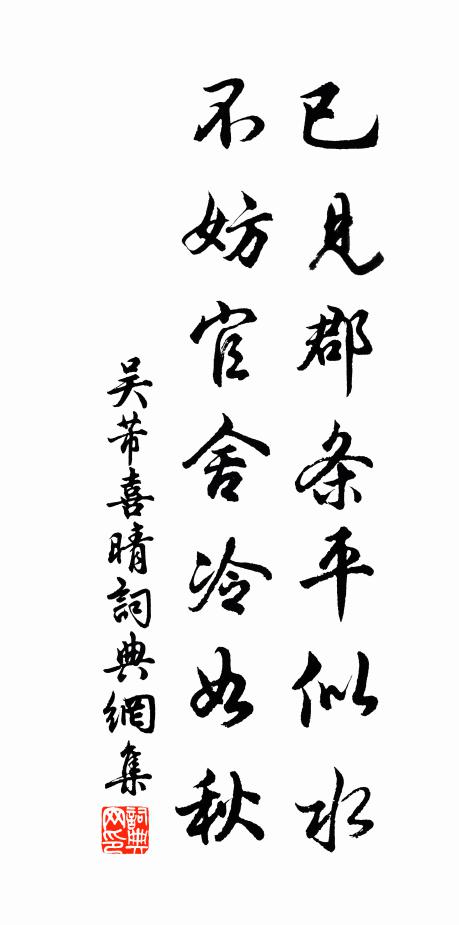 已見郡条平似水
不妨官舍冷如秋
吴芾喜晴詞典網集
詞典網印